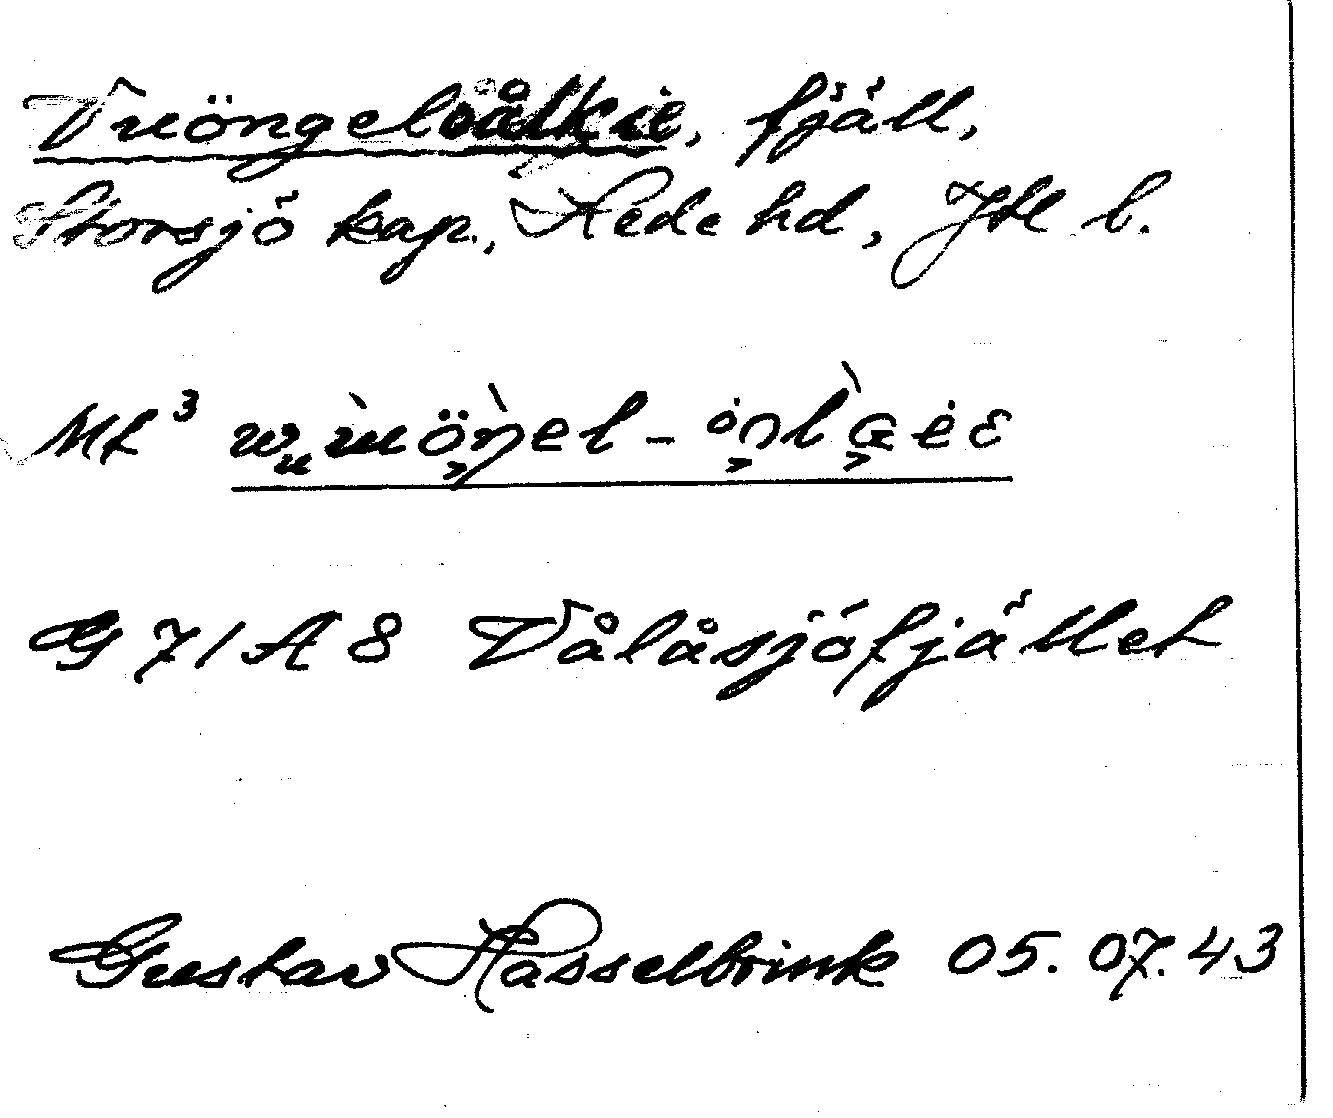 Vuöngelvålkie, fjäll,
Storsjö kap., Hede hd, Jtl l.
Mt³
G 71 A 8 Vålåsjöfjället
Gustav Hasselbrink 05.07.43